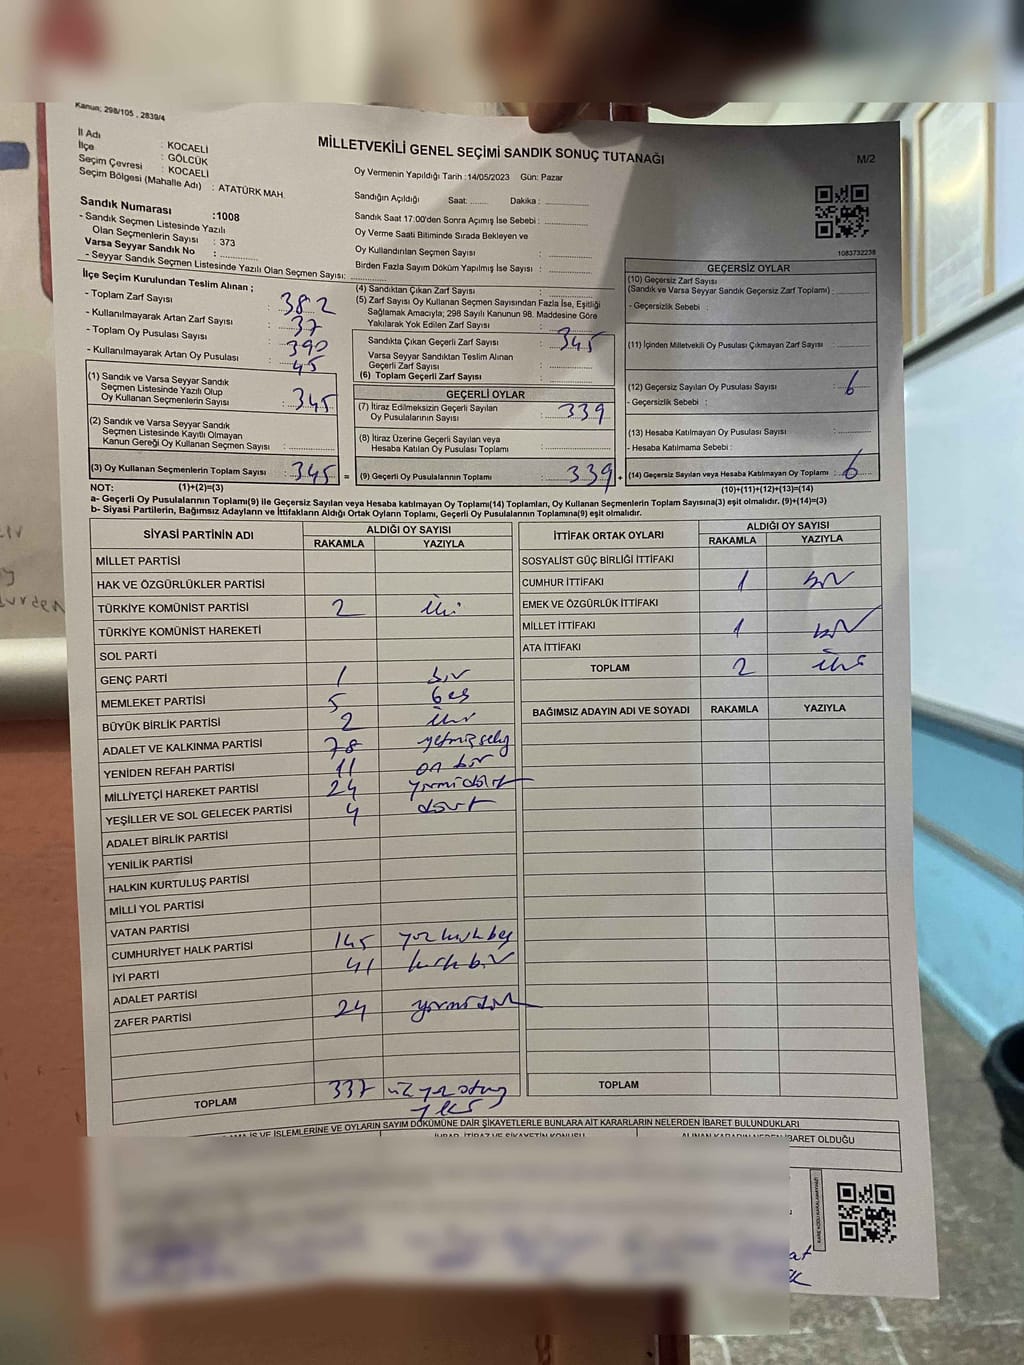 Kanun; 298/105 , 2839/4
İl Adı : KOCAELİ
İlçe : GÖLCÜK
Seçim Çevresi : KOCAELİ
Seçim Bölgesi (Mahalle Adı) : ATATÜRK MAH.
MİLLETVEKİLİ GENEL SEÇİMİ SANDIK SONUÇ TUTANAĞI
M/2
Oy Vermenin Yapıldığı Tarih :14/05/2023 Gün: Pazar
Sandığın Açıldığı Saat: ........ Dakika : ................
Sandık Saat 17.00'den Sonra Açımış İse Sebebi : ................
Oy Verme Saati Bitiminde Sırada Bekleyen ve
Oy Kullandırılan Seçmen Sayısı : ................
Birden Fazla Sayım Döküm Yapılmış İse Sayısı : ................
Sandık Numarası :1008
- Sandık Seçmen Listesinde Yazılı
Olan Seçmenlerin Sayısı : 373
Varsa Seyyar Sandık No : ................
- Seyyar Sandık Seçmen Listesinde Yazılı Olan Seçmen Sayısı: ................
1083732238
İlçe Seçim Kurulundan Teslim Alınan ;
- Toplam Zarf Sayısı : 382
- Kullanılmayarak Artan Zarf Sayısı : 37
- Toplam Oy Pusulası Sayısı : 390
- Kullanılmayarak Artan Oy Pusulası : 45
(1) Sandık ve Varsa Seyyar Sandık
Seçmen Listesinde Yazılı Olup
Oy Kullanan Seçmenlerin Sayısı : 345
(2) Sandık ve Varsa Seyyar Sandık
Seçmen Listesinde Kayıtlı Olmayan
Kanun Gereği Oy Kullanan Seçmen Sayısı : ................
(3) Oy Kullanan Seçmenlerin Toplam Sayısı : 345 =
(4) Sandıktan Çıkan Zarf Sayısı : ................
(5) Zarf Sayısı Oy Kullanan Seçmen Sayısından Fazla İse, Eşitliği
Sağlamak Amacıyla; 298 Sayılı Kanunun 98. Maddesine Göre
Yakılarak Yok Edilen Zarf Sayısı : ................
Sandıkta Çıkan Geçerli Zarf Sayısı : 345
Varsa Seyyar Sandıktan Teslim Alınan
Geçerli Zarf Sayısı : ................
(6) Toplam Geçerli Zarf Sayısı : ................
GEÇERLİ OYLAR
(7) İtiraz Edilmeksizin Geçerli Sayılan
Oy Pusulalarının Sayısı : 339
(8) İtiraz Üzerine Geçerli Sayılan veya
Hesaba Katılan Oy Pusulası Toplamı : ................
(9) Geçerli Oy Pusulalarının Toplamı : 339 +
GEÇERSİZ OYLAR
(10) Geçersiz Zarf Sayısı
(Sandık ve Varsa Seyyar Sandık Geçersiz Zarf Toplamı) : ................
- Geçersizlik Sebebi :
(11) İçinden Milletvekili Oy Pusulası Çıkmayan Zarf Sayısı : ................
(12) Geçersiz Sayılan Oy Pusulası Sayısı : 6
- Geçersizlik Sebebi :
(13) Hesaba Katılmayan Oy Pusulası Sayısı : ................
- Hesaba Katılmama Sebebi :
(14) Geçersiz Sayılan veya Hesaba Katılmayan Oy Toplamı : 6
NOT: (1)+(2)=(3) (10)+(11)+(12)+(13)=(14)
a- Geçerli Oy Pusulalarının Toplamı(9) ile Geçersiz Sayılan veya Hesaba katılmayan Oy Toplamı(14) Toplamları, Oy Kullanan Seçmenlerin Toplam Sayısına(3) eşit olmalıdır. (9)+(14)=(3)
b- Siyasi Partilerin, Bağımsız Adayların ve İttifakların Aldığı Ortak Oyların Toplamı, Geçerli Oy Pusulalarının Toplamına(9) eşit olmalıdır.
SİYASİ PARTİNİN ADI ALDIĞI OY SAYISI
RAKAMLA YAZIYLA
MİLLET PARTİSİ
HAK VE ÖZGÜRLÜKLER PARTİSİ
TÜRKİYE KOMÜNİST PARTİSİ 2 iki
TÜRKİYE KOMÜNİST HAREKETİ
SOL PARTİ
GENÇ PARTİ 1 bir
MEMLEKET PARTİSİ 5 beş
BÜYÜK BİRLİK PARTİSİ 2 iki
ADALET VE KALKINMA PARTİSİ 78 yetmişsekiz
YENİDEN REFAH PARTİSİ 11 on bir
MİLLİYETÇİ HAREKET PARTİSİ 24 yirmidört
YEŞİLLER VE SOL GELECEK PARTİSİ 4 dört
ADALET BİRLİK PARTİSİ
YENİLİK PARTİSİ
HALKIN KURTULUŞ PARTİSİ
MİLLİ YOL PARTİSİ
VATAN PARTİSİ
CUMHURİYET HALK PARTİSİ 145 yüz kırk beş
İYİ PARTİ 41 kırk bir
ADALET PARTİSİ
ZAFER PARTİSİ 24 yirmi dört
TOPLAM 337 üç yüz otuz
yedi
İTTİFAK ORTAK OYLARI ALDIĞI OY SAYISI
RAKAMLA YAZIYLA
SOSYALİST GÜÇ BİRLİĞİ İTTİFAKI
CUMHUR İTTİFAKI 1 bir
EMEK VE ÖZGÜRLÜK İTTİFAKI
MİLLET İTTİFAKI 1 bir
ATA İTTİFAKI
TOPLAM 2 iki
BAĞIMSIZ ADAYIN ADI VE SOYADI RAKAMLA YAZIYLA
TOPLAM
İŞ VE İŞLEMLERİNE VE OYLARIN SAYIM DÖKÜMÜNE DAİR ŞİKAYETLERLE BUNLARA AİT KARARLARIN NELERDEN İBARET BULUNDUKLARI
İHBAR, İTİRAZ VE ŞİKAYETİN KONUSU ALINAN KARARIN NEDEN İBARET OLDUĞU